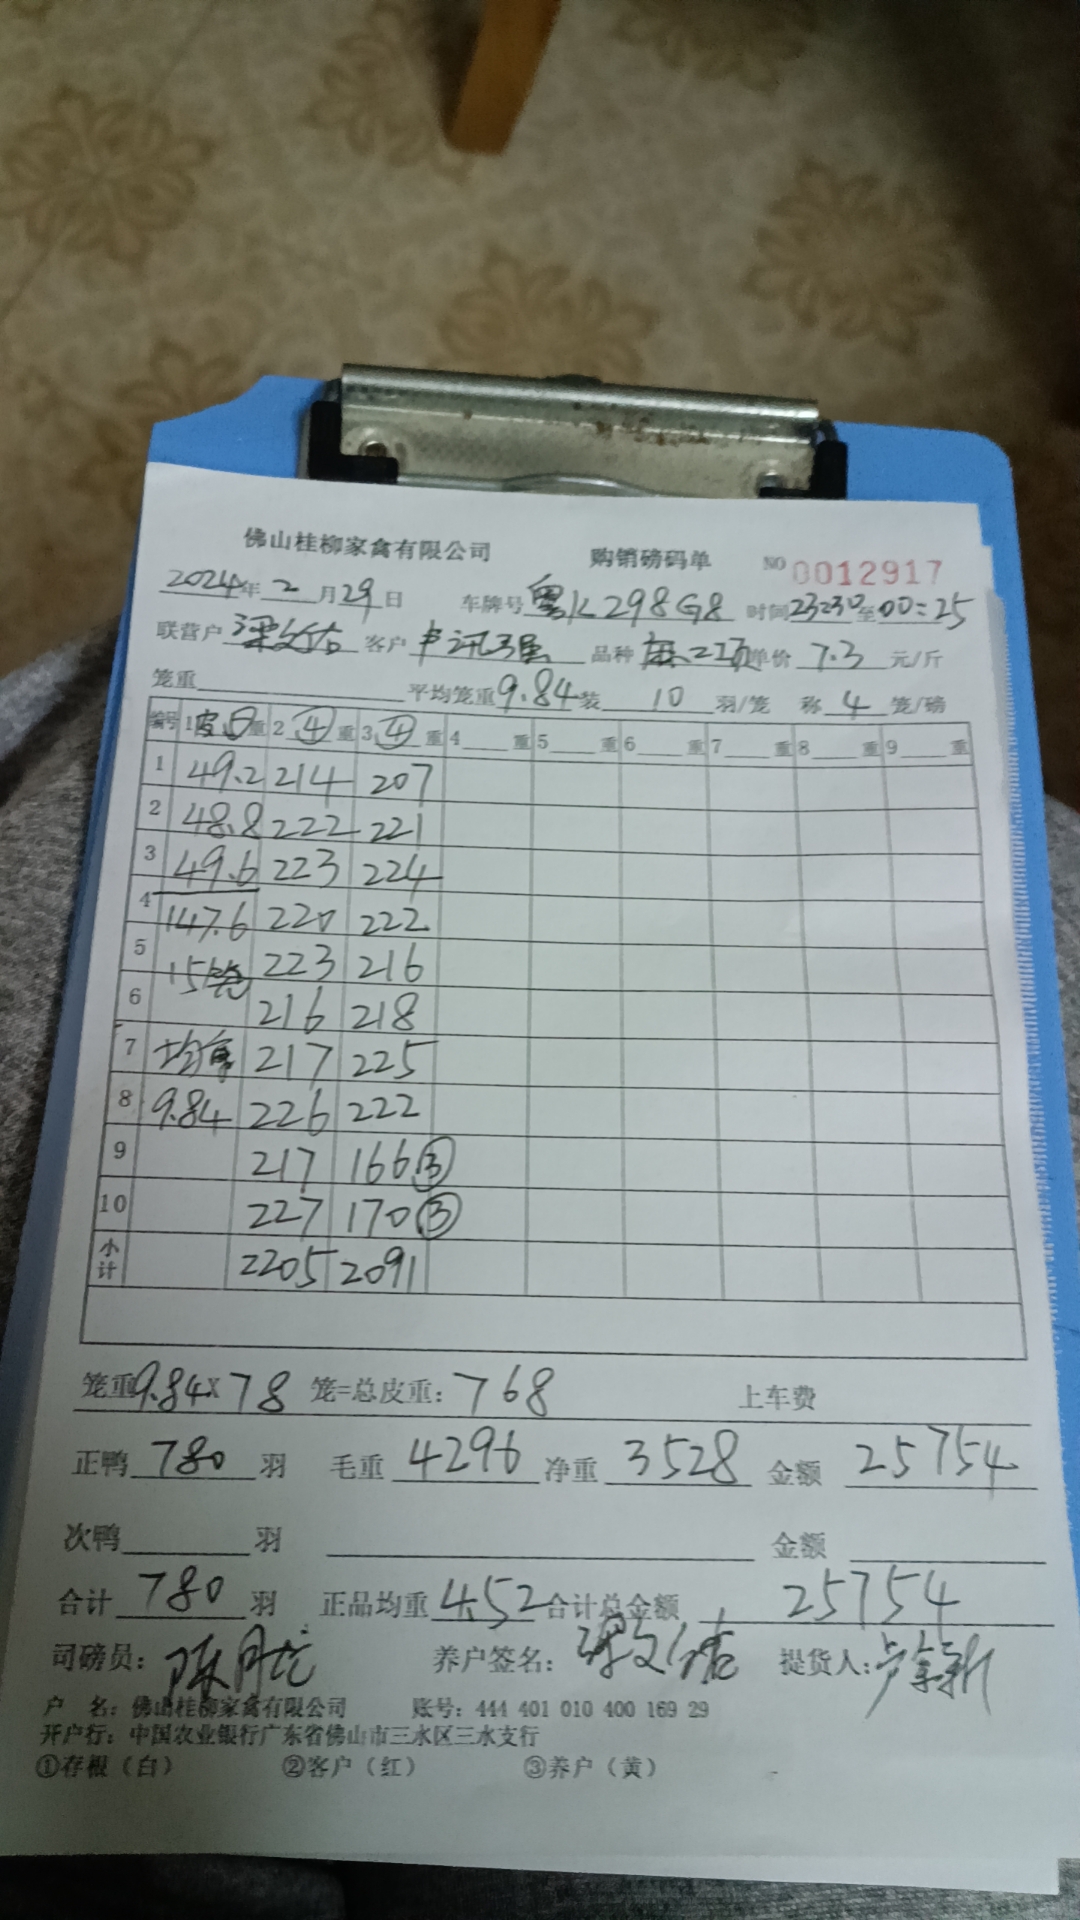 佛山桂柳家禽有限公司 购销磅码单 NO 0012917
2024年 2 月 29 日 车牌号 粤K298G8 时间 23:30 至 00:25
联营户 梁文洁 客户 卢讯强 品种 单价 7.3 元/斤
笼重 平均笼重 9.84 装 10 羽/笼 称 4 笼/磅
编号 1 皮 ⑤ 重 2 ④ 重 3 ④ 重 4 重 5 重 6 重 7 重 8 重 9 重
1 49.2 214 207
2 48.8 222 221
3 49.6 223 224
4 147.6 220 222
5 15笼 223 216
6 216 218
7 均重 217 225
8 9.84 226 222
9 217 166 ③
10 227 170 ③
小计 2205 2091
笼重 9.84 x 78 笼=总皮重: 768 上车费
正鸭 780 羽 毛重 4296 净重 3528 金额 25754
次鸭 羽 金额
合计 780 羽 正品均重 4.52 合计总金额 25754
司磅员: 养户签名: 梁文洁 提货人:
户 名: 佛山桂柳家禽有限公司 账号: 444 401 010 400 169 29
开户行: 中国农业银行广东省佛山市三水区三水支行
①存根（白） ②客户（红） ③养户（黄）